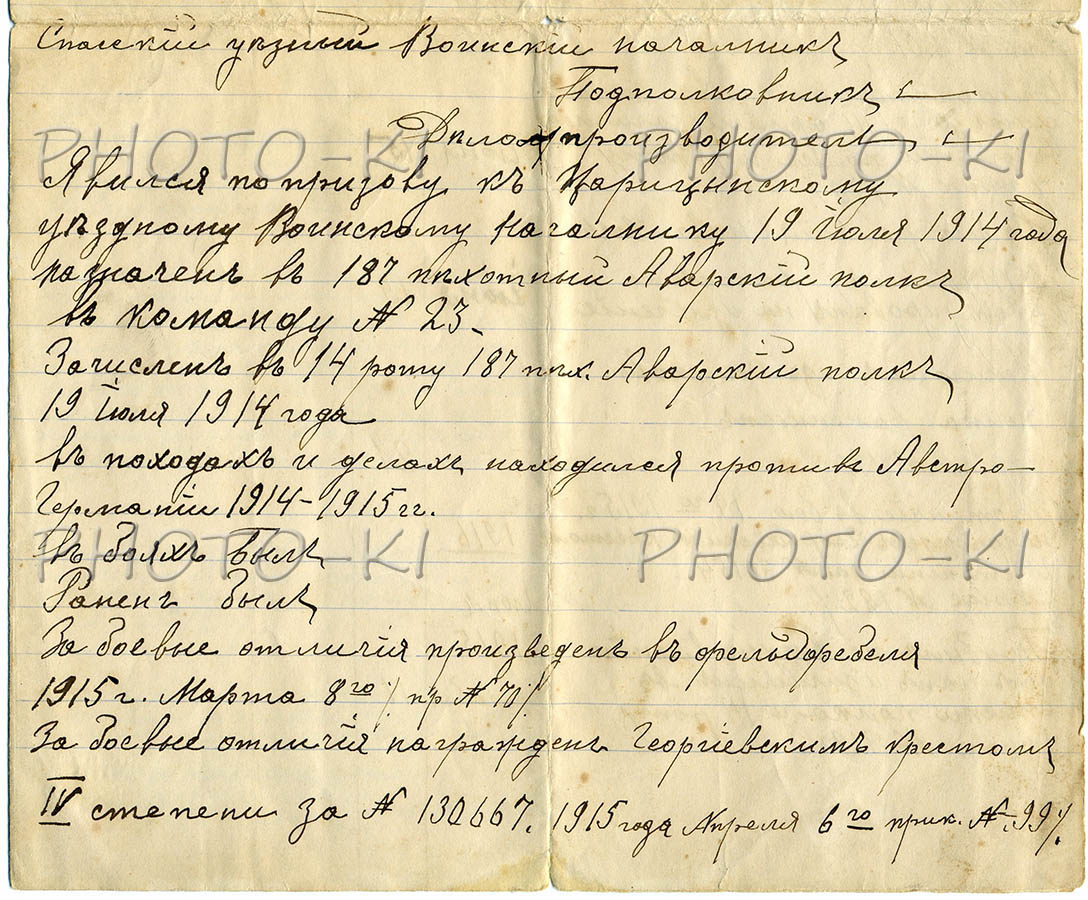 Спасскій уѣзный Воинскій началникъ
Подполковникъ
Дѣлопроизводитель
Явился по призову къ Царицынскому
уѣздному Воинскому Началнику 19 Іюля 1914 года
назначенъ въ 187 пѣхотный Аварскій полкъ
въ команду № 23.
Зачисленъ въ 14 роту 187 пѣх. Аварскій полкъ
19 Іюля 1914 года
въ походахъ и делахъ находился противъ Австро-
Германіи 1914-1915 гг.
въ бояхъ былъ
Раненъ былъ
За боевые отличія произведенъ въ фельдфебеля
1915 г. Марта 8го пр № 70
За боевые отличія награжденъ Георгіевскимъ крестомъ
IV степени за № 130667. 1915 года Апреля 6го прик. № 99
PHOTO-KI PHOTO-KI
PHOTO-KI PHOTO-KI